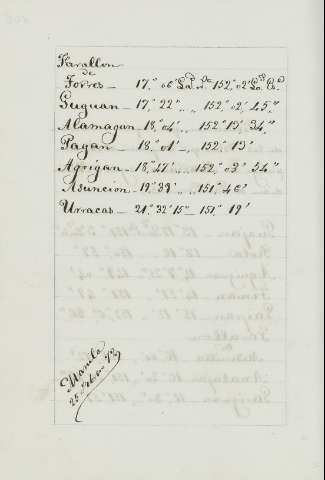 Farallon
de
Torres — 17,° 06' Lad N. de 152,° 02' Lo. Es.
Guguan — 17,° 22" „ „ 152,° 02,' 45,"
Alamagan — 18,° 04' „ 152° 19' 34,"
Pagan — 18,° 01' —, 152,° 19'
Agrigan — 18,° 47' „ „ 152,° 03' 54"
Asuncion — 19,° 39' „ „ 151,° 46'
Urracas — 21,° 32' 15" — 151,° 19'
Manila
25